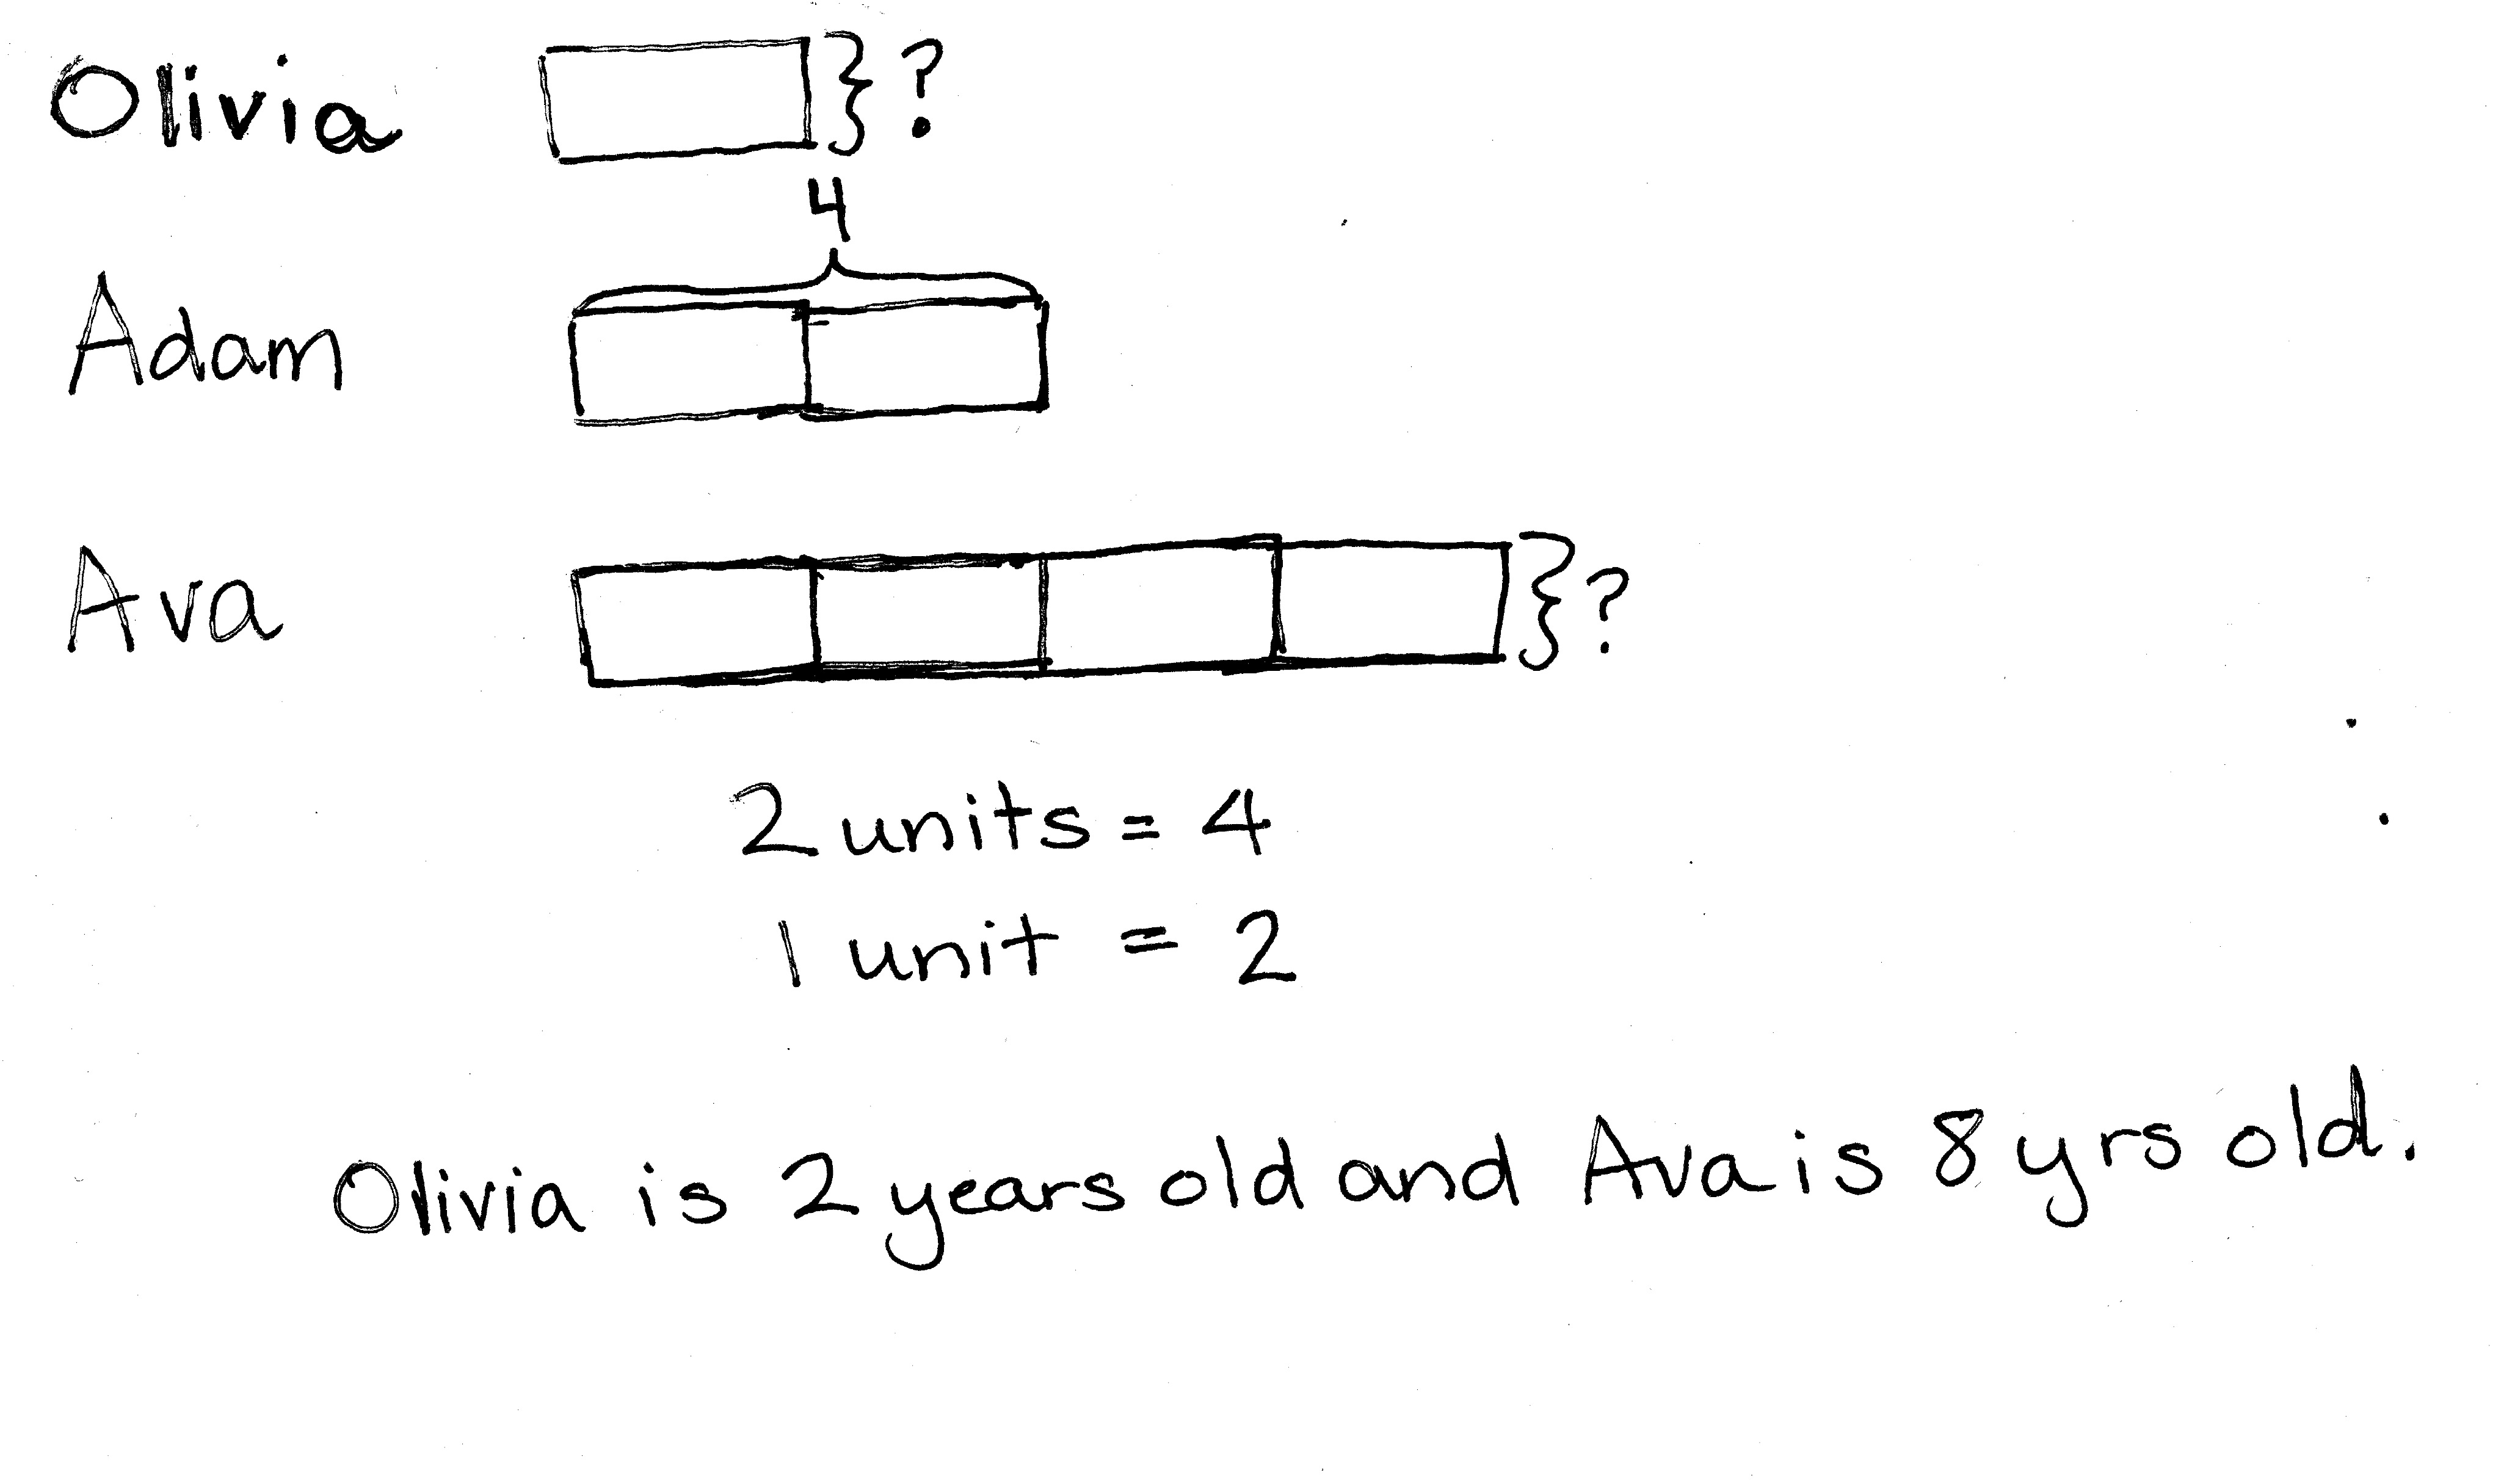 Olivia }?
4
Adam
Ava }?
2 units = 4
1 unit = 2
Olivia is 2 years old and Ava is 8 yrs old.